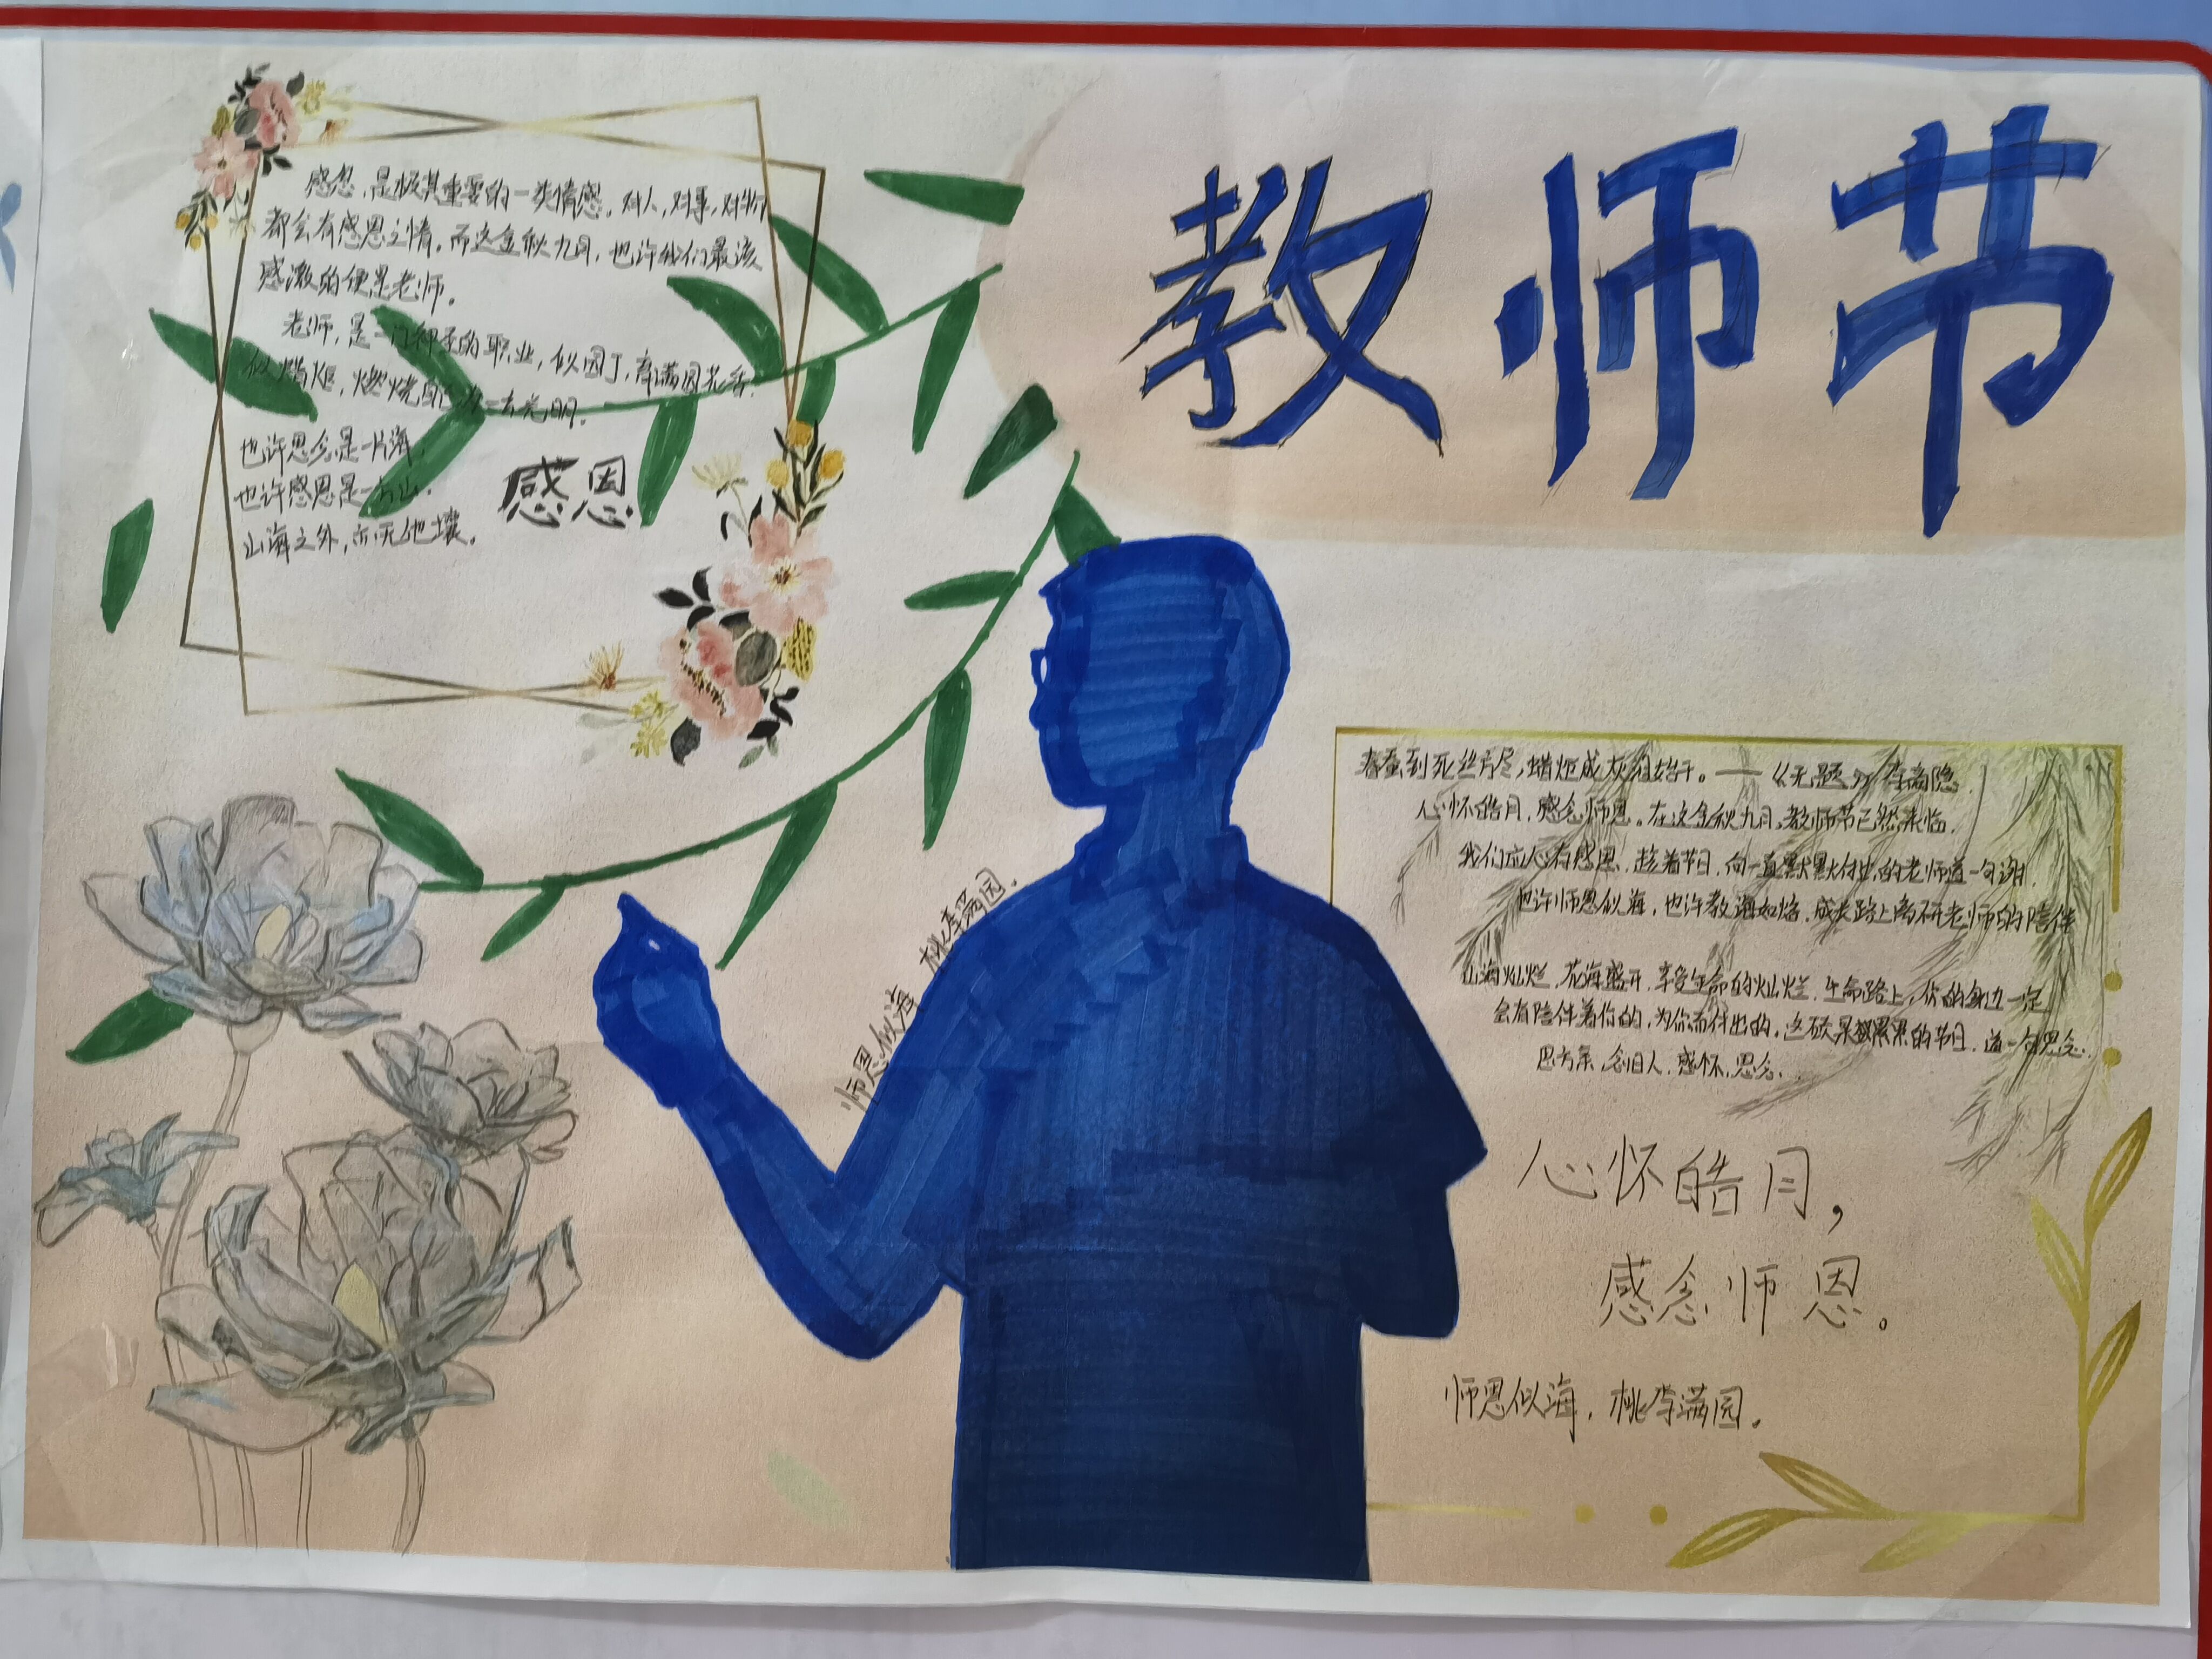 教师节
感恩，是极其重要的一类情感。对人，对事，对物
都会有感恩之情。而这金秋九月，也许我们最该
感激的便是老师。
老师，是一门神圣的职业，似园丁，育满园花香.
似蜡炬，燃烧自己为一方光明.
也许思念是一片海.
也许感恩是一方山.
山海之外，亦无他壤。
感恩
师恩似海 桃李满园.
春蚕到死丝方尽，蜡炬成灰泪始干。——《无题》李商隐.
心怀皓月，感念师恩。在这金秋九月，教师节已然来临.
我们应心有感恩、趁着节日，向一直默默付出的老师道一句谢.
也许师恩似海，也许教诲如烙，成长路上离不开老师的陪伴
山海灿烂，花海盛开，享受生命的灿烂，生命路上，你的身边一定
会有陪伴着你的，为你而付出的，这硕果累累的节日，道一句思念..
思方亲，念旧人，感怀，思念...
心怀皓月，
感念师恩。
师恩似海，桃李满园。